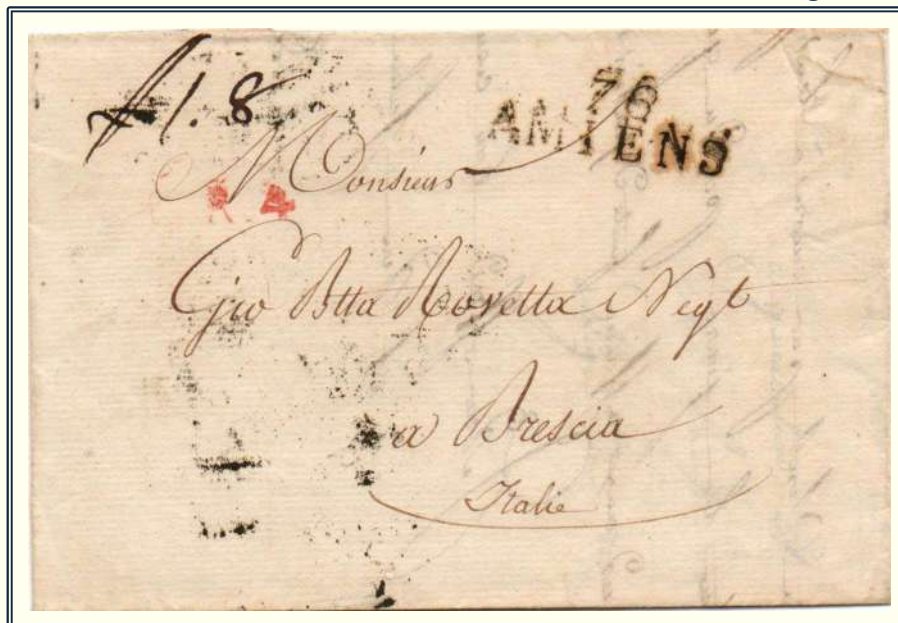 £1.8
76
AMIENS
Monsieur
R. 4
Gio Btta Rovetta Negt
a Brescia
Italie